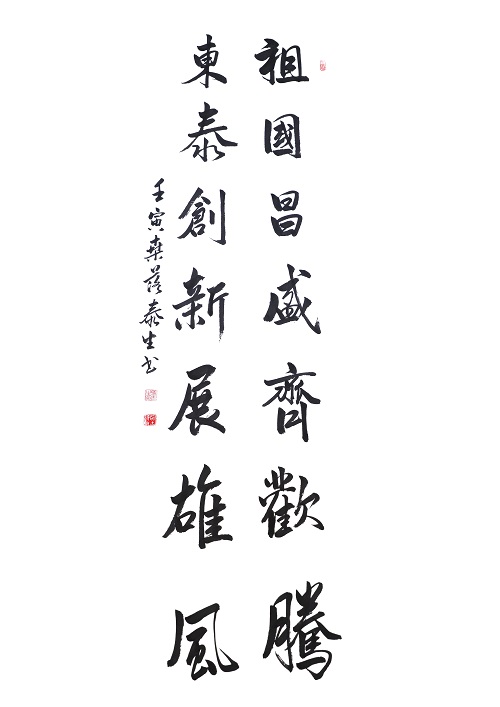 祖國昌盛齊歡騰
東泰創新展雄風
壬寅桑落泰生书